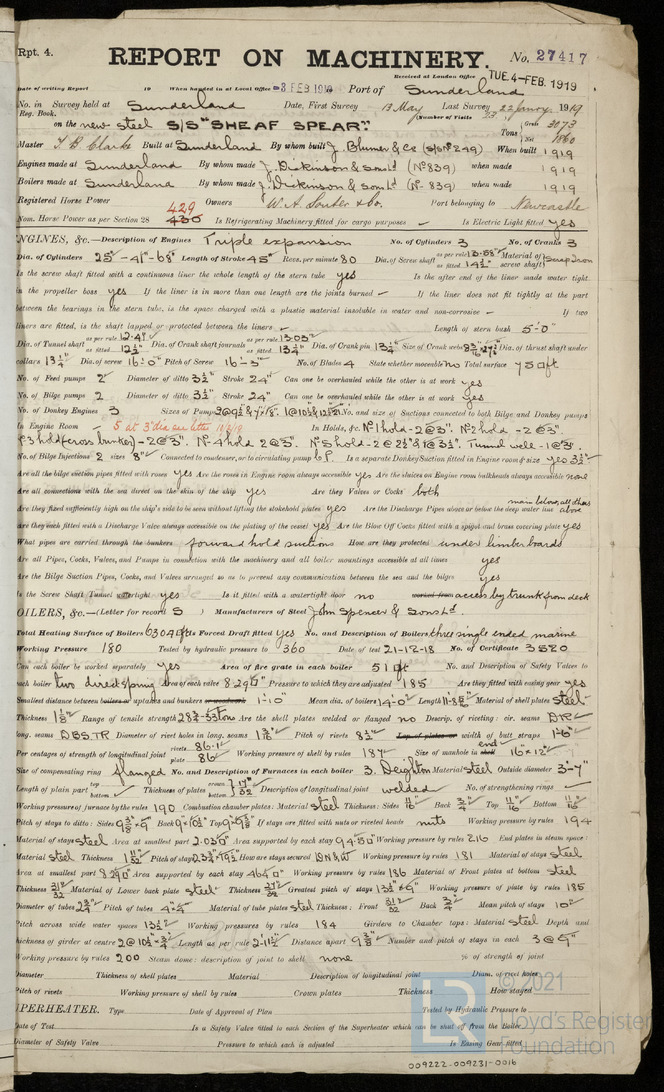 Rpt. 4.
REPORT ON MACHINERY.
No. 27417
Received at London Office TUE. 4-FEB. 1919
Date of writing Report 19 When handed in at Local Office -3 FEB 1919 Port of Sunderland
No. in Survey held at Sunderland Date, First Survey 13 May Last Survey 22 Janry. 1919
Reg. Book. (Number of Visits
on the new steel S/S "SHEAF SPEAR". Tons Gross 3073 Net 1860
Master T B Clarke Built at Sunderland By whom built J. Blumer & Co (S/S No 249) When built 1919
Engines made at Sunderland By whom made J. Dickinson & Sons Ld (No 839) when made 1919
Boilers made at Sunderland By whom made J. Dickinson & Sons Ld (No 839) when made 1919
Registered Horse Power Owners W. A. Souter & Co. Port belonging to Newcastle
429
Nom. Horse Power as per Section 28 430 Is Refrigerating Machinery fitted for cargo purposes Is Electric Light fitted yes
NGINES, &c.—Description of Engines Triple expansion No. of Cylinders 3 No. of Cranks 3
Dia. of Cylinders 25"-41"-68" Length of Stroke 45" Revs. per minute 80 Dia. of Screw shaft as per rule 13.58" as fitted 14½" Material of screw shaft Scrap Iron
Is the screw shaft fitted with a continuous liner the whole length of the stern tube yes Is the after end of the liner made water tight
in the propeller boss yes If the liner is in more than one length are the joints burned If the liner does not fit tightly at the part
between the bearings in the stern tube, is the space charged with a plastic material insoluble in water and non-corrosive If two
liners are fitted, is the shaft lapped or protected between the liners Length of stern bush 5'-0"
Dia. of Tunnel shaft as per rule 12.41" as fitted Dia. of Crank shaft journals as per rule 13.03" as fitted 13¼" Dia. of Crank pin 13¼" Size of Crank webs Dia. of thrust shaft under
collars 13¼" Dia. of screw 16'-0" Pitch of Screw 16'-3" No. of Blades 4 State whether moveable no Total surface 75 oft
No. of Feed pumps 2 Diameter of ditto 3½" Stroke 24" Can one be overhauled while the other is at work yes
No. of Bilge pumps 2 Diameter of ditto 3½" Stroke 24" Can one be overhauled while the other is at work yes
No. of Donkey Engines 3 Sizes of Pumps No. and size of Suctions connected to both Bilge and Donkey pumps
In Engine Room 5 at 3" dia see letter In Holds, &c. No 1 hold - 2 @ 3". No 2 hold - 2 @ 3".
No 3 hold (cross bunker) - 2 @ 3". No 4 hold 2 @ 3". No 5 hold - 2 @ 2½" & 1 @ 3½". Tunnel well - 1 @ 3".
No. of Bilge Injections 2 sizes 8" Connected to condenser, or to circulating pump c.p. Is a separate Donkey Suction fitted in Engine room & size yes 3½"
Are all the bilge suction pipes fitted with roses yes Are the roses in Engine room always accessible yes Are the sluices on Engine room bulkheads always accessible none
Are all connections with the sea direct on the skin of the ship yes Are they Valves or Cocks both
Are they fixed sufficiently high on the ship's side to be seen without lifting the stokehold plates yes Are the Discharge Pipes above or below the deep water line main below, all others above
Are they each fitted with a Discharge Valve always accessible on the plating of the vessel yes Are the Blow Off Cocks fitted with a spigot and brass covering plate yes
What pipes are carried through the bunkers forward hold suctions How are they protected under limber boards
Are all Pipes, Cocks, Valves, and Pumps in connection with the machinery and all boiler mountings accessible at all times yes
Are the Bilge Suction Pipes, Cocks, and Valves arranged so as to prevent any communication between the sea and the bilges yes
Is the Screw Shaft Tunnel watertight yes Is it fitted with a watertight door no worked from access by trunk from deck
OILERS, &c.—(Letter for record S ) Manufacturers of Steel John Spencer & Sons Ld.
Total Heating Surface of Boilers 6304 oft Is Forced Draft fitted yes No. and Description of Boilers three single ended marine
Working Pressure 180 Tested by hydraulic pressure to 360 Date of test 21-12-18 No. of Certificate 3520
Can each boiler be worked separately yes Area of fire grate in each boiler 51 oft No. and Description of Safety Valves to
each boiler two direct spring Area of each valve 8.29 Pressure to which they are adjusted 185 Are they fitted with easing gear yes
Smallest distance between boilers or uptakes and bunkers or woodwork 1'-10" Mean dia. of boilers 14'-0" Length Material of shell plates steel
Thickness Range of tensile strength 28¾-33 tons Are the shell plates welded or flanged no Descrip. of riveting: cir. seams DR
long. seams DBS.TR Diameter of rivet holes in long. seams Pitch of rivets Lap of plates or width of butt straps
Per centages of strength of longitudinal joint rivets 86.1 plate 86 Working pressure of shell by rules 187 Size of manhole in shell end 16"x12"
Size of compensating ring flanged No. and Description of Furnaces in each boiler 3. Deighton Material steel Outside diameter 3'-7"
Length of plain part top bottom Thickness of plates crown bottom 17/32 Description of longitudinal joint welded No. of strengthening rings
Working pressure of furnace by the rules 190 Combustion chamber plates: Material steel Thickness: Sides 11/16" Back Top 11/16" Bottom
Pitch of stays to ditto: Sides Back Top If stays are fitted with nuts or riveted heads nuts Working pressure by rules 194
Material of stays steel Area at smallest part 2.03 Area supported by each stay Working pressure by rules 216 End plates in steam space:
Material steel Thickness Pitch of stays How are stays secured DN & W Working pressure by rules 181 Material of stays steel
Area at smallest part Area supported by each stay Working pressure by rules 186 Material of Front plates at bottom steel
Thickness Material of Lower back plate steel Thickness Greatest pitch of stays Working pressure of plate by rules 185
Diameter of tubes Pitch of tubes Material of tube plates steel Thickness: Front Back Mean pitch of stays 10"
Pitch across wide water spaces 13½" Working pressures by rules 184 Girders to Chamber tops: Material steel Depth and
thickness of girder at centre Length as per rule Distance apart Number and pitch of stays in each 3 @ 9"
Working pressure by rules 200 Steam dome: description of joint to shell none % of strength of joint
Diameter Thickness of shell plates Material Description of longitudinal joint Diam. of rivet holes
Pitch of rivets Working pressure of shell by rules Crown plates Thickness How stayed
UPERHEATER. Type Date of Approval of Plan Tested by Hydraulic Pressure to
Date of Test Is a Safety Valve fitted to each Section of the Superheater which can be shut off from the Boiler
Diameter of Safety Valve Pressure to which each is adjusted Is Easing Gear fitted
© 2021
Lloyd's Register
Foundation
009222-009231-0016